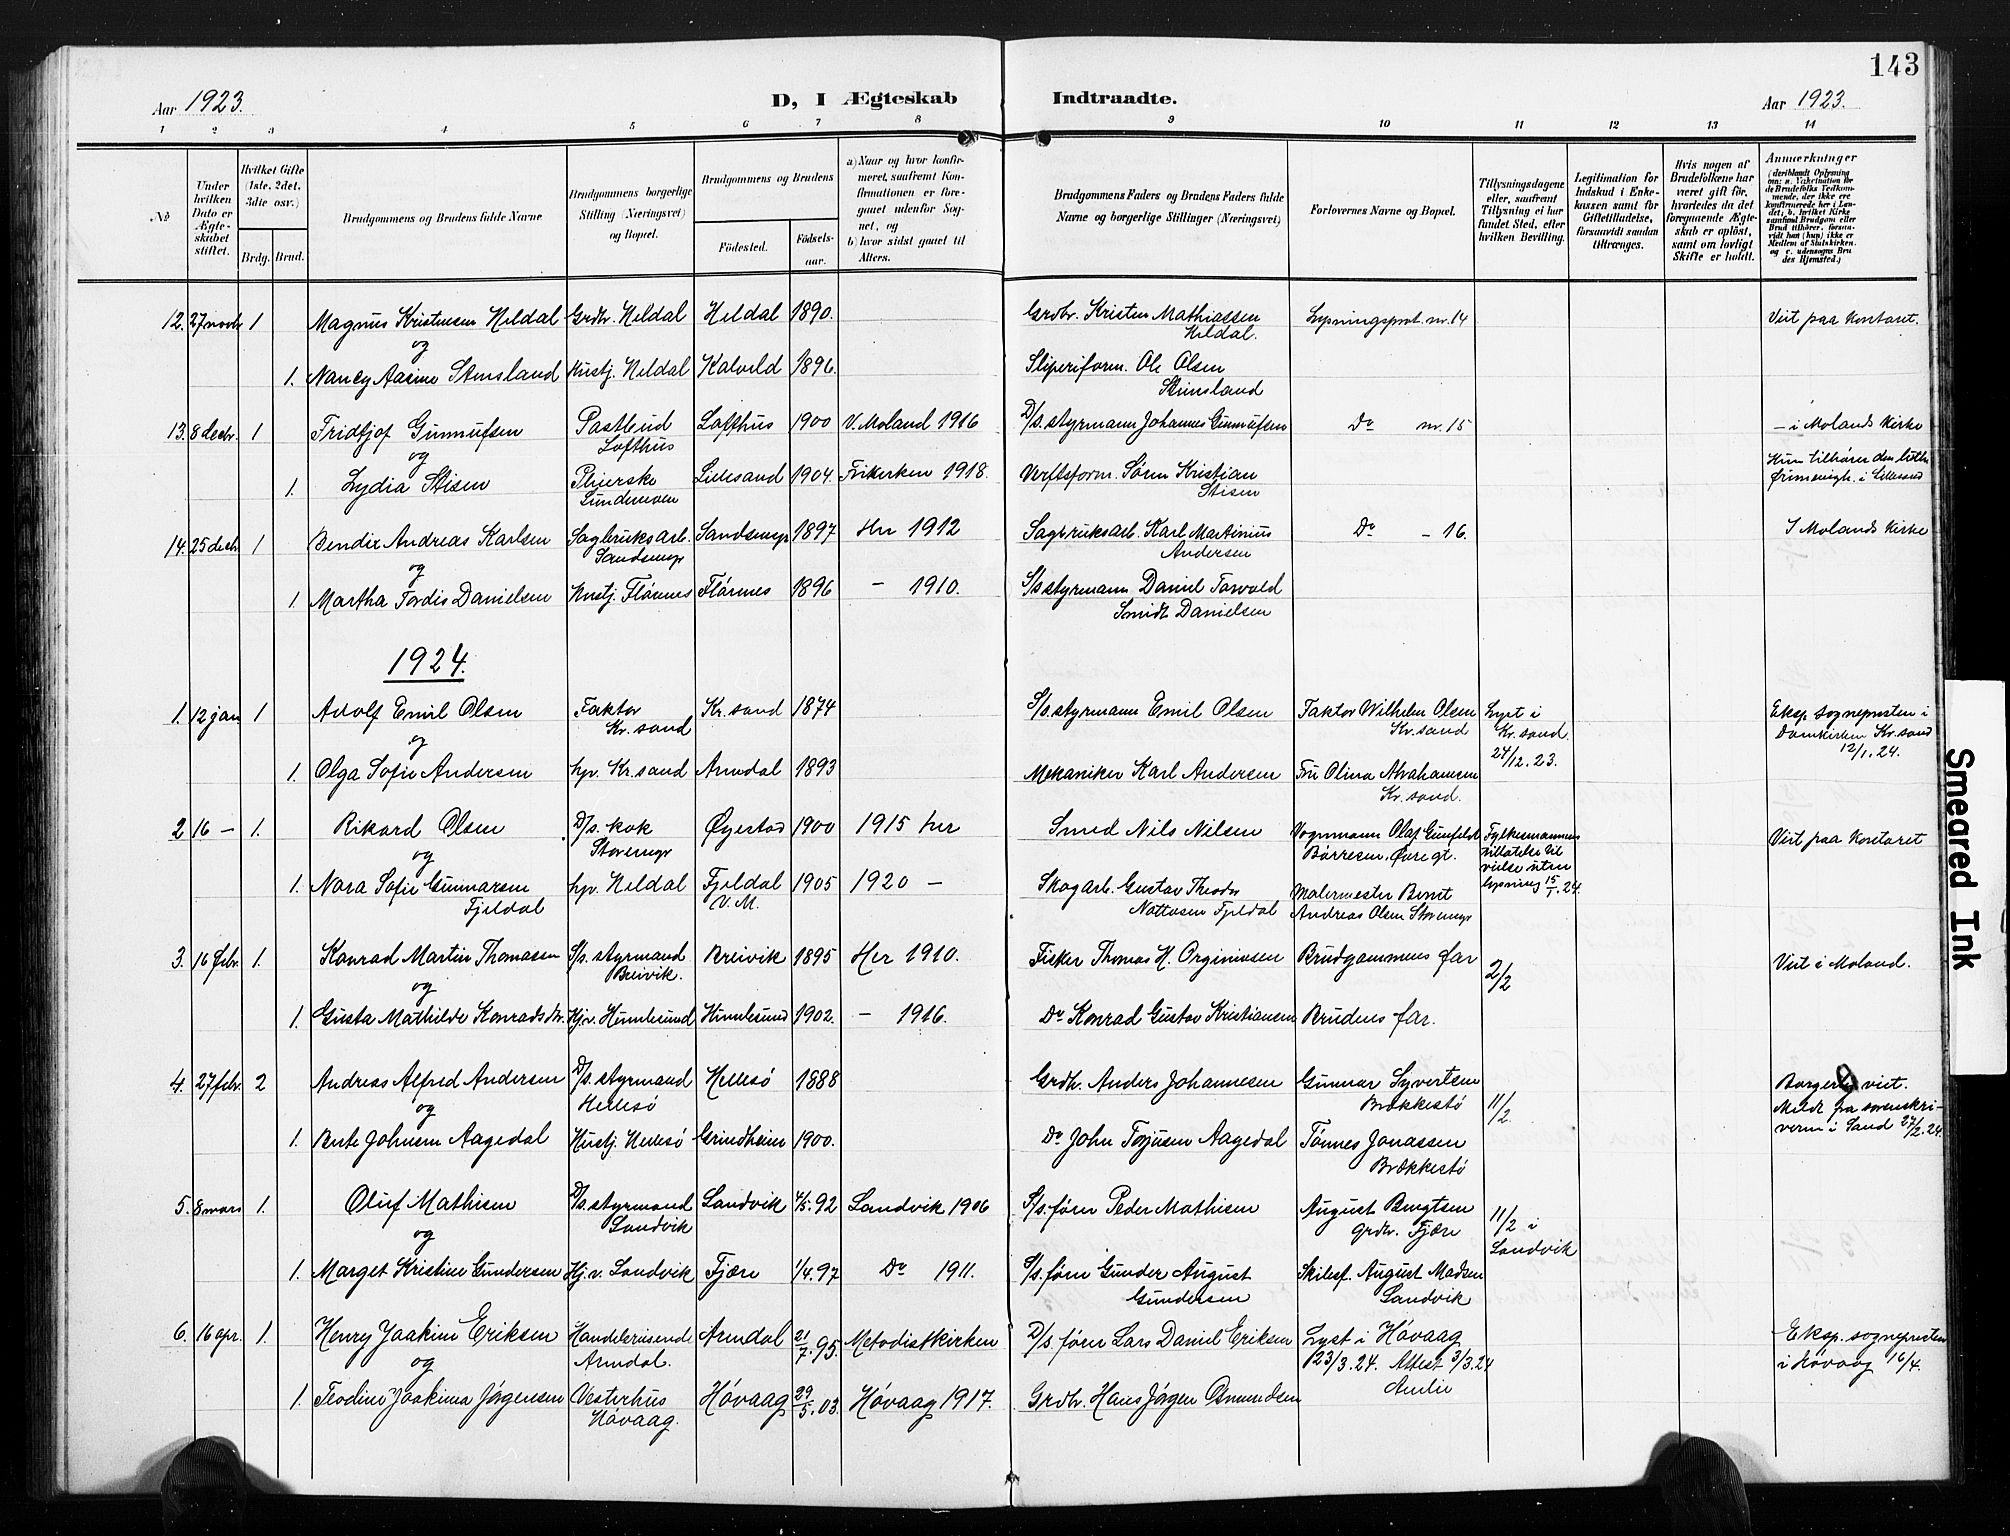 143
Aar 1923.
D, I Ægteskab Indtraadte.
Aar 1923.
1 2 3 4 5 6 7 8 9 10 11 12 13 14
No
Under hvilken Dato er Ægteskabet stiftet.
Hvilket Gifte (1ste, 2det, 3die osv.)
Brdg. Brud.
Brudgommens og Brudens fulde Navne
Brudgommens borgerlige Stilling (Næringsvei) og Bopæl.
Brudgommens og Brudens
Fødested. Fødsels-aar.
a) Naar og hvor konfirmeret, saafremt Konfirmationen er foregaaet udenfor Sognet, og
b) hvor sidst gaaet til Alters.
Brudgommens Faders og Brudens Faders fulde Navne og borgerlige Stillinger (Næringsvei)
Forlovernes Navne og Bopæl.
Tillysningsdagene eller, saafremt Tillysning ei har fundet Sted, efter hvilken Bevilling.
Legitimation for Indskud i Enkekassen samt for Giftetilladelse, forsaavidt saadan tiltrænges.
Hvis nogen af Brudefolkene har været gift før, hvorledes da det foregaaende Ægteskab er opløst, samt om lovligt Skifte er holdt.
Anmærkninger
12. 27 novbr 1 Magnus Kristensen Heldal Grdbr. Heldal Heldal 1890. Grdbr. Kristen Mathiassen Heldal. Lysningsprot. nr. 14 Viet paa Kontoret.
og
1. Nancy Aasine Stensland Hustj. Heldal Kalveld 1896. Sliperiform. Ole Olsen Stensland
13. 8 decbr. 1 Fridtjof Gunnufsen Postbud Lofthus Lofthus 1900 V. Moland 1916 D/s. styrmann Johannes Gunnufsen Do nr. 15 — i Molands Kirke
og
1. Lydia Stisen Pleierske Lillesand 1904. Frikirken 1918. Verftsform. Sören Kristian Stisen Hun tilhører den luth. i Lillesand
14. 25 decbr 1 Bendix Andreas Karlsen Sagbruksarb. Sandsmyr Sandsmyr 1897 Her 1912 Sagbruksarb. Karl Martinius Andersen Do — 16. I Molands Kirke
og
1. Martha Tordis Danielsen Hustj. Flörnes Flörnes 1896 — 1910. S/s styrmann Daniel Torvald Smidt Danielsen
1924.
1. 12 jan 1 Adolf Emil Olsen Faktor Kr.sand Kr.sand 1874 S/s. styrmann Emil Olsen Faktor Wilhelm Olsen Kr.sand Lyst i Kr.sand. 24/12. 23. Eksp. sognepresten i Domkirken Kr.sand 12/1. 24.
og
1. Olga Sofie Andersen hp. Kr.sand Arendal 1893 Mekaniker Karl Andersen Fru Olina Abrahamsen Kr.sand.
2 16 — 1. Rikard Olsen D/s. kok Storemyr Øyestad 1900 1915 her Smed Nils Nilsen Vognmann Olaf Gunfeldt Børresen, Øvregt. Fylkesmannens tillatelse til vielse uten lysning 15/1. 24. Viet paa Kontoret
og
1. Nora Sofie Gunnarsen Fjeldal hp. Heldal Fjeldal V.M. 1905 1920 — Skogarb. Gustav Theodor Fjeldal Malermester Bernt Andreas Olsen Storemyr
3. 16 febr. 1. Konrad Martin Thomassen S/s. styrmand Breivik. Breivik 1895 Her 1910. Fisker Thomas H. Orginiusen Brudgommens far 2/2 Viet i Moland.
og
1. Gusta Mathilde Konradsdtr. Hj.v. Humlesund Humlesund 1902. — 1916. Do Konrad Gustav Kristiansen Brudens far.
4. 27 febr. 2 Andreas Alfred Andersen D/s. styrmand Hellesö Hellesö 1888 Grdbr. Anders Johannesen Gunnar Syvertsen Brækkestö 11/2 Borgerlig viet. Meldt fra sorenskriveren i Sand 27/2. 24.
og
1. Berte Johnsen Aagedal Hustj. Hellesö Grindheim 1900. Do John Torjusen Aagedal Tönnes Jonassen Brækkestö
5. 8 mars 1. Oluf Mathisen D/s. styrmand Landvik Landvik 4/5. 92 Landvik 1906 S/s. förer Peder Mathisen August Bengtsen grdbr. Fjære 11/2 i Landvik
og
1. Marget Kristine Gundersen Hj.v. Landvik Fjære 1/4. 97 Do 1911. S/s. förer Gunder August Gundersen Skibsf. August Madsen Landvik
6. 16 apr. 1. Henry Joakim Eriksen Handelsreisende Arendal. Arendal 21/7. 95. Metodistkirken D/s. förer Lars Daniel Eriksen Lyst i Hövaag 23/3. 24. Attest 3/3. 24 Eksp. sognepresten i Hövaag 16/4.
og
1. Teodine Joakima Jörgensen Vesterhus Hövaag. Hövaag 29/5. 03. Hövaag 1917. Grdbr. Hans Jörgen Osmundsen
Smeared Ink